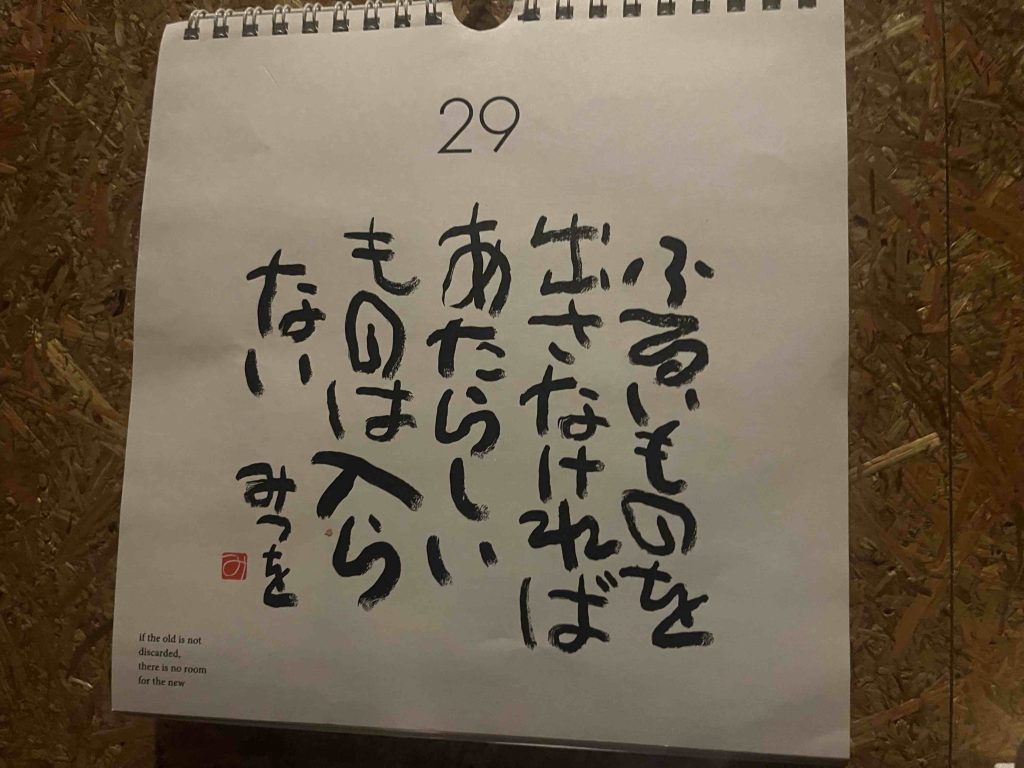 29
ふるいものを
出さなければ
あたらしい
ものは入ら
ない
みつを
み
if the old is not
discarded,
there is no room
for the new